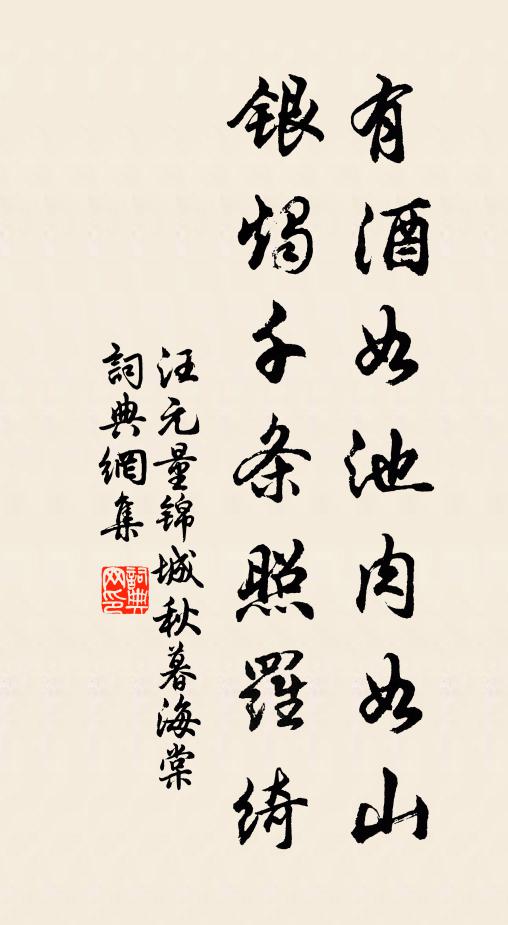 有酒如池肉如山
銀燭千条照羅綺
汪元量錦城秋暮海棠
詞典網集
詞典网印